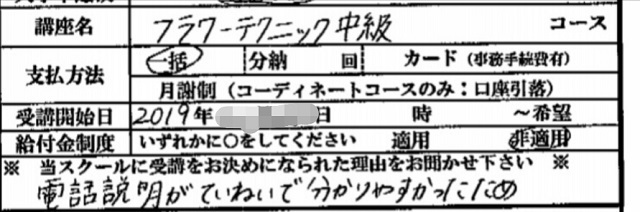 講座名 フラワーテクニック中級 コース
支払方法 一括 分納 回 カード（事務手続費有）
月謝制（コーディネートコースのみ：口座引落）
受講開始日 2019年 日 時 ～希望
給付金制度 いずれかに〇をしてください 適用 非適用
※ 当スクールに受講をお決めになられた理由をお聞かせ下さい ※
電話説明がていねいで分かりやすかったため